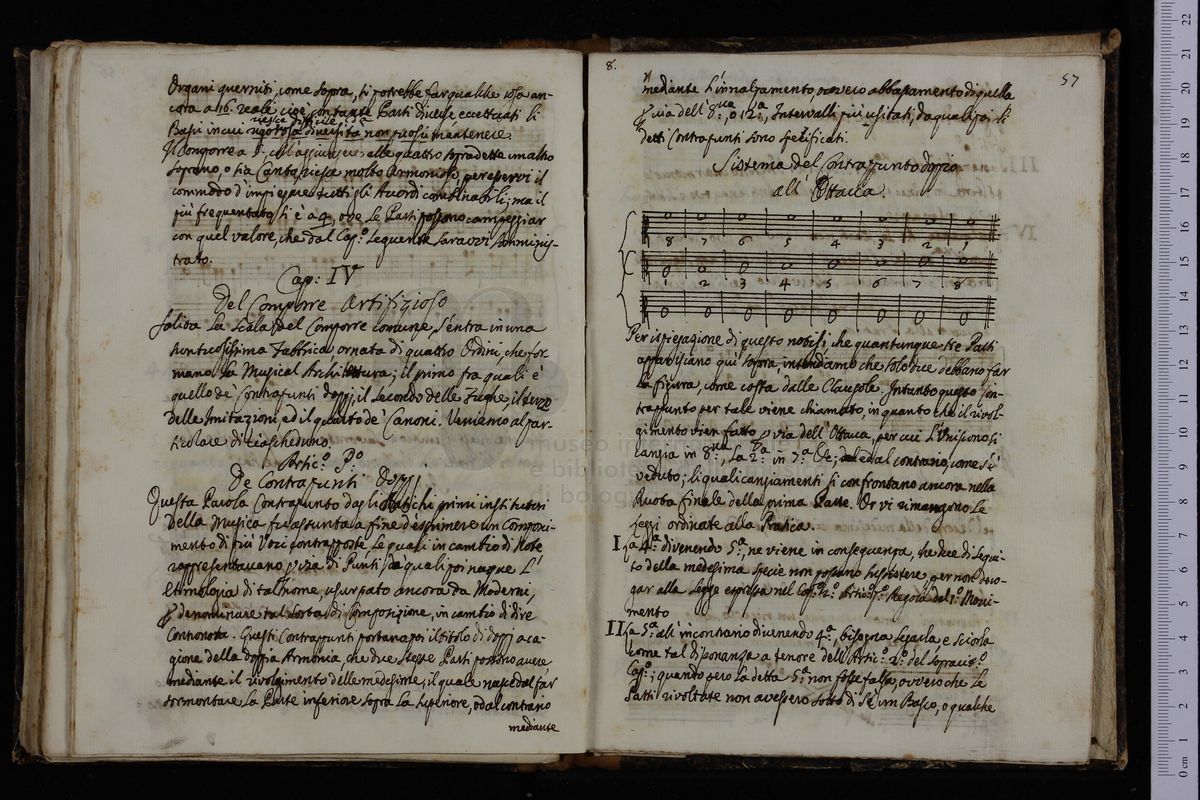 Organi querniti, come sopra, si potrebbe far qualche cosa an-
cora a 16. reali, cioè con tante Parti diverse eccettuati li
riesce difficile
Bassi in cui rigorosa diversità non puossi mantenere.
Il comporre a 5. coll'aggiungere alle quattro sopradette un altro
Soprano, o sia Canto, riesce molto Armonioso, per esservi il
commodo d'impiegare tutti gli Acordi combinabili; ma il
più frequentato si è a 4, ove le Parti possono campeggiar
con quel valore, che dal Cap.º sequente saravvi somminis-
trato.
Cap: IV
Del Comporre Artifizioso
Salita la Scala del Comporre comune, s'entra in una
suntuosissima Fabbrica ornata di quattro Ordini, che for-
mano la Musical Architettura; il primo fra quali è
quello de' Contrapunti doppj, il Secondo delle Fughe, il terzo
delle Imitazioni, ed il quarto de' Canoni. Veniamo al par-
ticolare di ciascheduno.
Artic.º P.º
De Contrapunti Doppj
Questa Parola Contrapunto dagli Antichi primi institutori
della Musica fu assunta a fine d'esprimere un Componi-
mento di più Voci contrapposte le quali in cambio di Note
rappresentavano p via di Punti, da quali poi nacque l'
etimologia di tal nome, usurpato ancora da Moderni,
p denominare tal sorta di Composizione, in cambio di dire
Contranota. Questi Contrappunti portano poi il titolo di doppj a ca-
gione della doppia Armonia, che due stesse Parti possono avere
mediante il rivolgimento delle medesime, il quale nasce dal far
sormontare la Parte inferiore sopra la superiore, o dal contrario
mediante
8.
57
mediante l'innalzamento ovvero abbassamento di quella
p via dell'8va, o 12ª, Intervalli più usitati, da quali poi li
detti Contrapunti sono specificati.
Sistema del Contrappunto doppio
all' Ottava.
8 7 6 5 4 3 2 1
1 2 3 4 5 6 7 8
Per ispiegazione di questo notisi che quantunque tre Parti
appariscano qui sopra, intendiamo che solo due debbano far
la figura, come costa dalle Clausole. Intanto questo Con-
trappunto per tale viene chiamato, in quanto che il rivol-
gimento vien fatto p via dell'Ottava, per cui l'Unisono si
cangia in 8va, la 2ª in 7ª &c; ed al contrario, come s'è
veduto; li quali cangiamenti si confrontano ancora nella
Ruota finale della prima Parte. Or vi rimangono le
Leggi ordinate alla Pratica.
I La 4ª divenendo 5ª, ne viene in conseguenza, che due di segui-
to della medesima specie non possano sussistere, per non dero-
gar alla Legge espressa nel Cap.º 2.º Artic.º 1.º Regola del 1.º Movi-
mento
II La 5ª all'incontrario divenendo 4ª, bisogna legarla, e sciorla
come tal disonanza a tenore dell'Artic.º 2.º del sopracit.º
Cap.º; quando però la detta 5ª non fosse falsa, ovvero che le
Parti rivoltate non avessero sotto di sè un Basso, o qualche